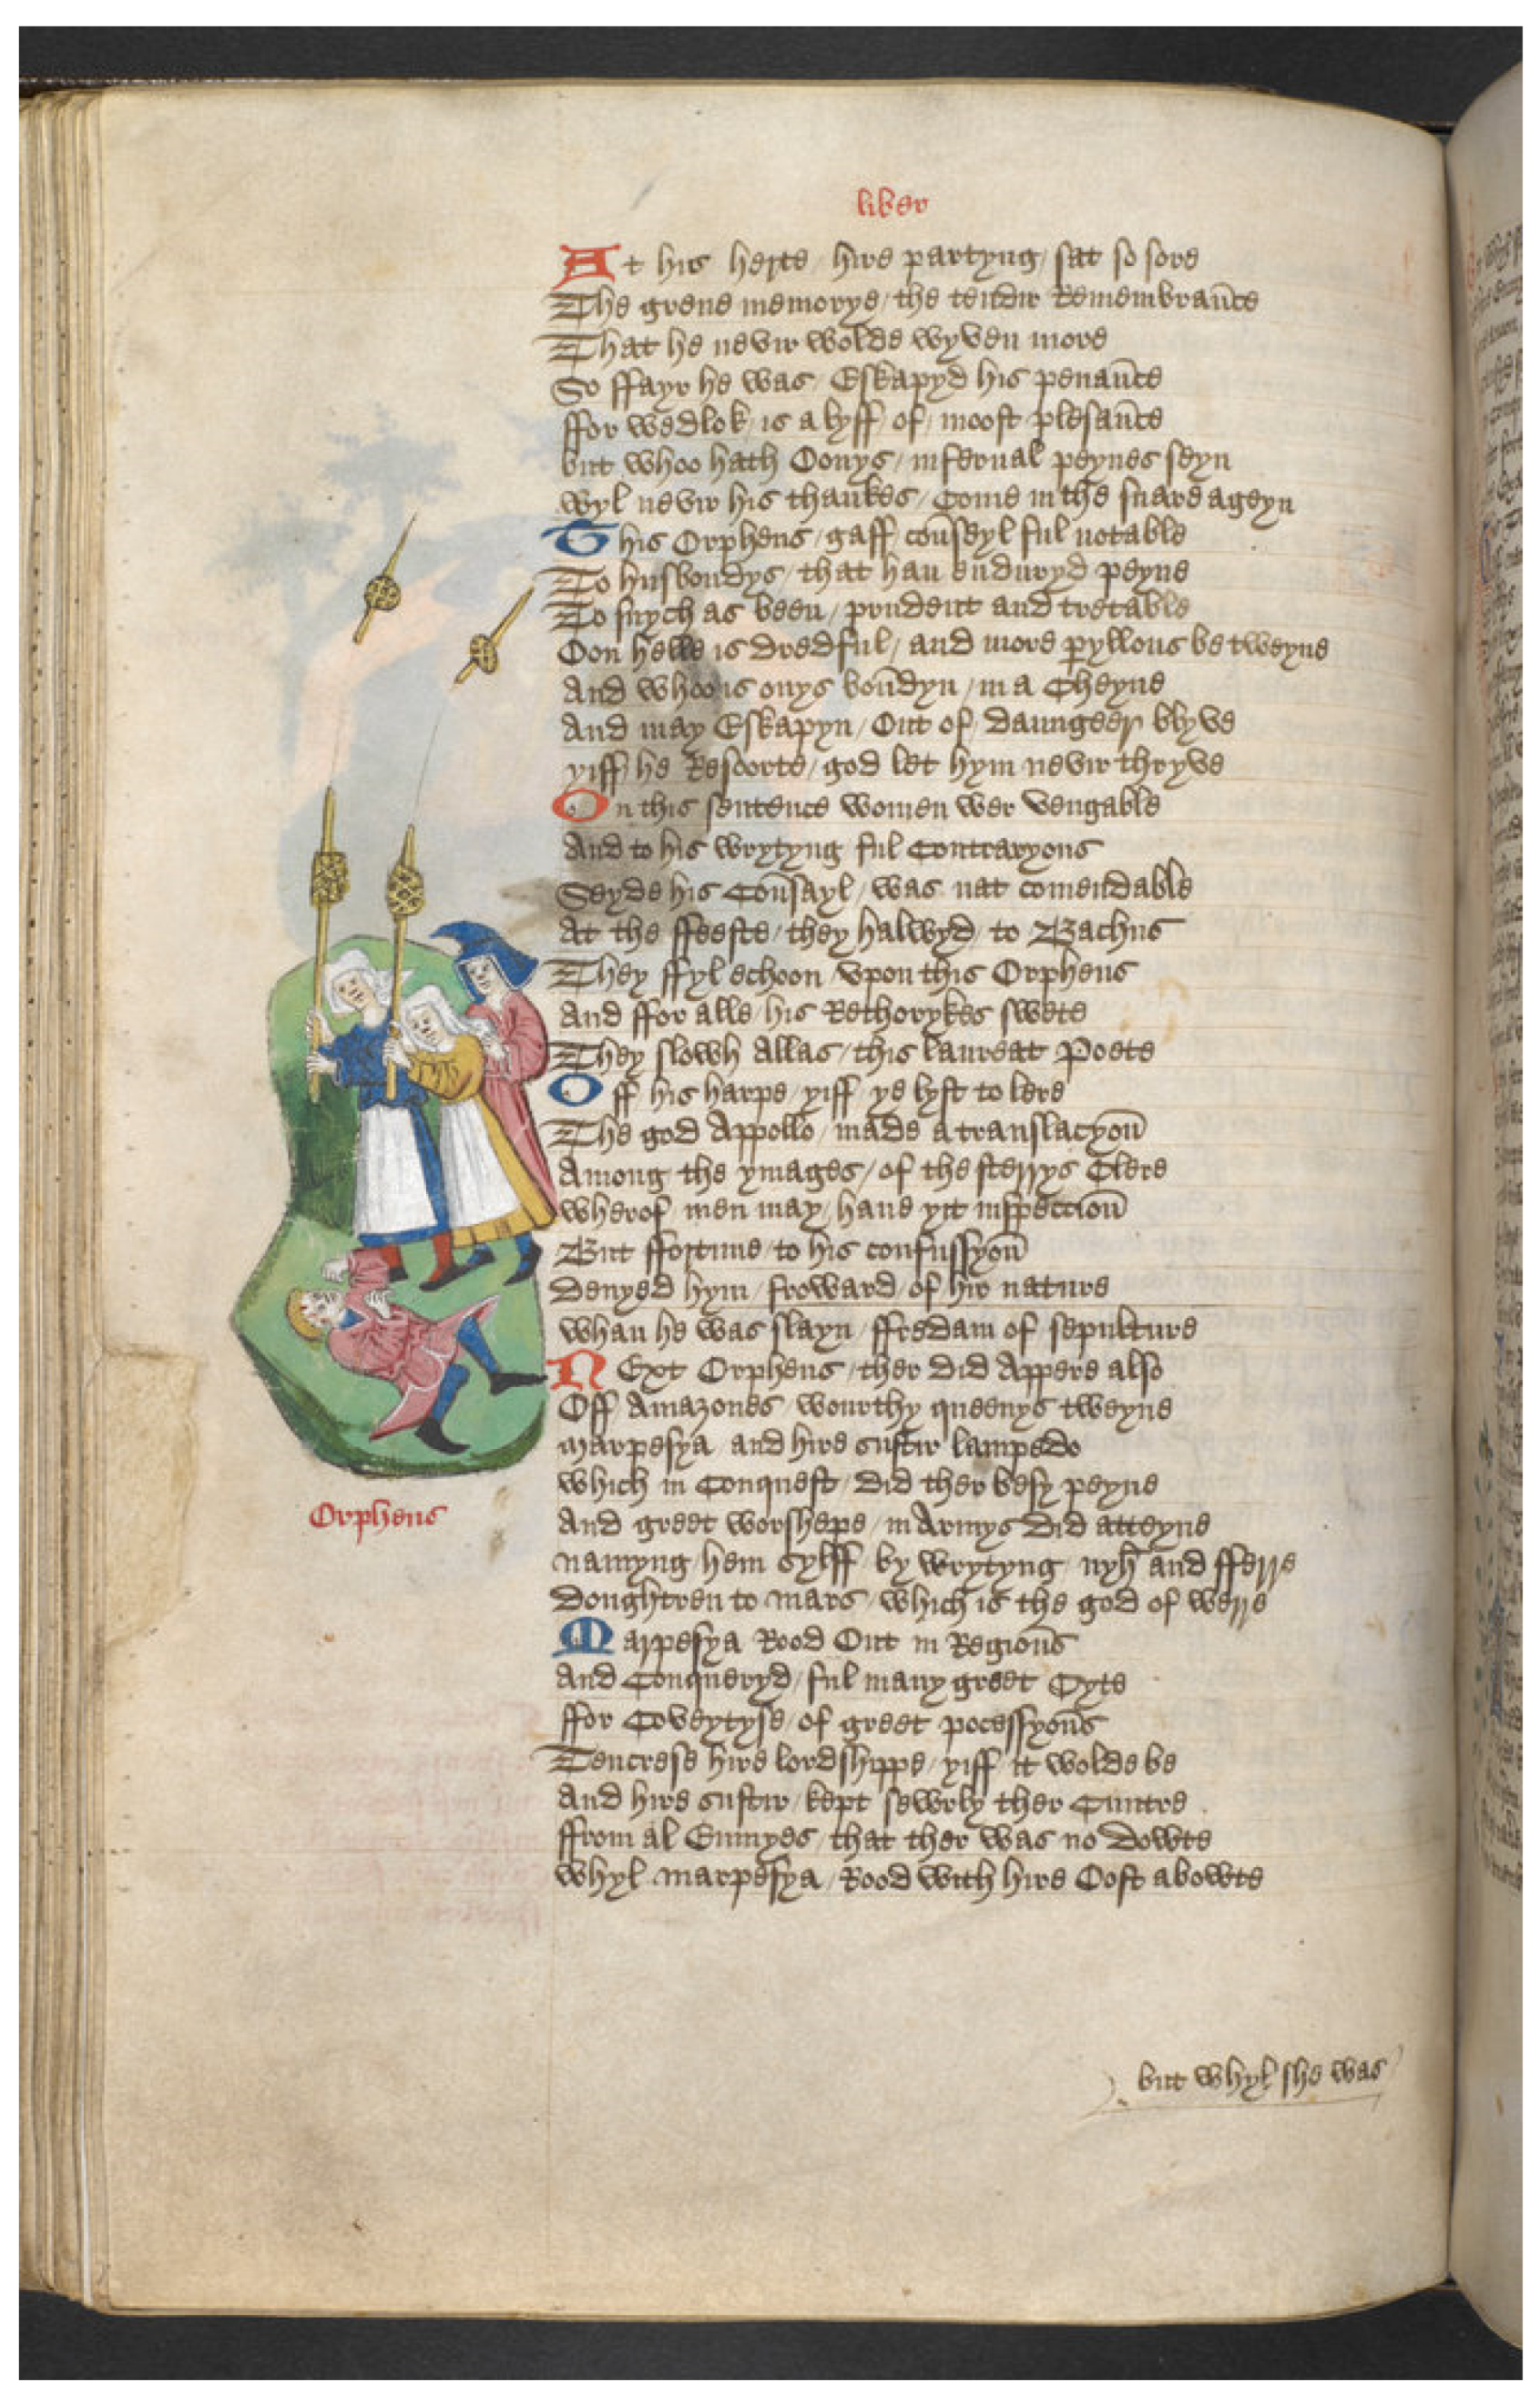 liber
At his herte / hire partyng / sat so sore
The grene memorye / the tendir Remembraūce
That he nevir wolde wyven more
So ffayr he was / Eskapyd his penaūce
ffor wedlok / is a lyff / of / moost plesaūce
but whoo hath Oonys / infernal peynes seyn
wyl nevir his thankes / Come in the snare ageyn
This Orpheus / gaff coūseyl ful notable
To husbondys / that han enduryd peyne
To suych as been / prudent and tretable
Oon helle is dredful / and more pyllous be tweyne
And whoo is onys boūdyn / in a Cheyne
And may Eskapyn / Out of / daungeer blyve
yiff he Resoorte / god let hym nevir thryve
On this sentence women wer vengable
And to his wrytyng ful Contraryous
Seyde his Coūsayl / was nat comendable
At the ffeeste / they halwyd / to Bachus
They ffyl echoon / vpon this Orpheus
And ffor alle / his Rethorykes swete
They slowh Allas / this laureat Poete
Off his harpe / yiff / ye lyst to lere
The god Appollo / made a translacyoū
Among the ymages / of the sterrys Clere
wherof men may / haue yit inspeccioū
But ffortune / to his confussyoū
Denyed hym / froward / of hir nature
whan he was slayn / ffredam of / sepulture
NExt Orpheus / ther did Appere also
Off Amazones / wourthy queenys tweyne
Marpesya and hire sustir lampedo
which in Conquest / did ther besy peyne
And greet worshepe / in Armys did atteyne
namyng / hem sylff / by wrytyng / nyh and fferre
doughtren to mars / which is the god of werre
Marpesya Rood Out in Regioūs
And Conqueryd / ful many greet Cyte
ffor Coveytyse / of greet pocessyoūs
Tencrese hire lordshippe / yiff it wolde be
And hire sustir / kept sewrly ther Cuntre
ffrom al Enmyes / that ther was no dowte
whyl marpesya / Rood with hire Oost abowte
Orpheus
but whyl she was